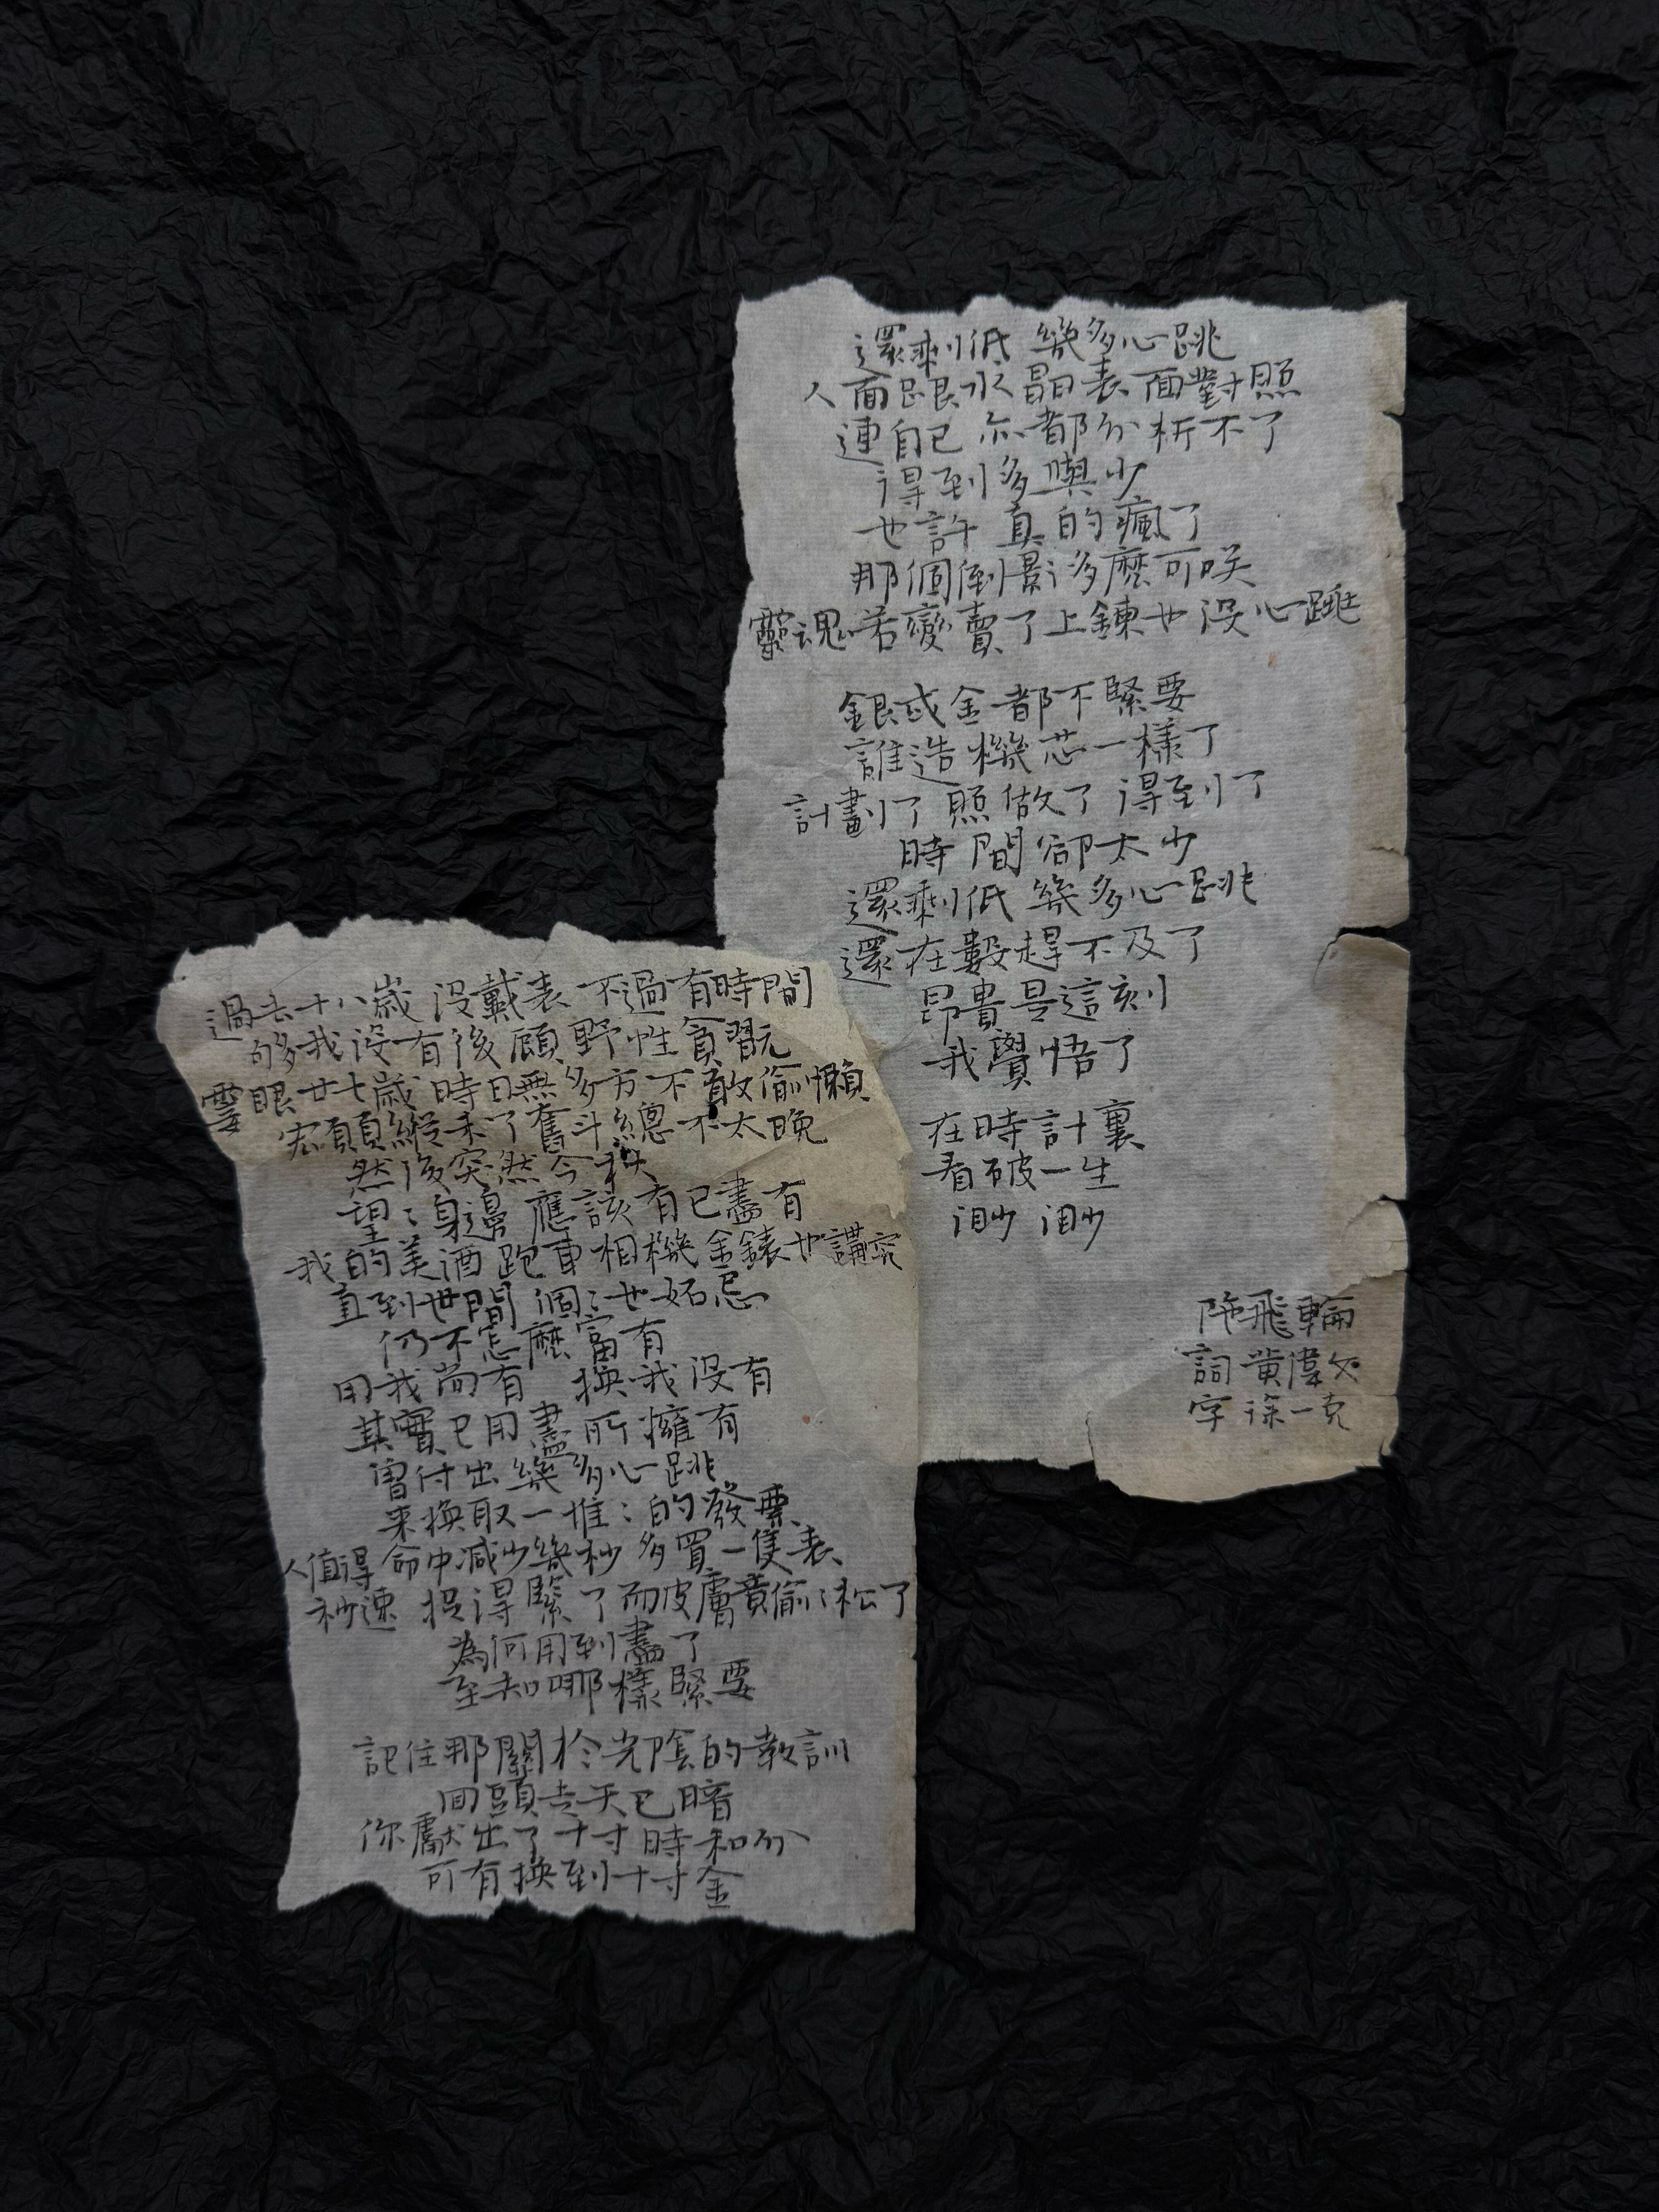 過去十八歲 沒戴表 不過有時間
夠多我沒有後顧 野性貪翫
霎眼廿七歲 時日無多方不敢偷懶
宏願縱未了 奮斗總不太晚
然後突然今秋
望:身邊 應該有已盡有
我的美酒跑車相機金錶也講究
直到世間 個:也妒忌
仍不怎麼富有
用我尚有 換我沒有
其實已用盡所擁有
曾付出幾多心跳
來換取一堆:的發票
人值得命中減少幾秒 多買一隻表
秒速 捉得緊了而皮膚竟偷:松了
為何用到盡了
至知哪樣緊要
記住那關於光陰的教訓
回頭走天已暗
你獻出了十寸時和分
可有換到十寸金
還剩低 幾多心跳
人面跟水晶表面對照
連自己 亦都分析不了
得到多與少
也許真的瘋了
那個倒影多麼可笑
靈魂若變賣了上鍊也沒心跳
銀或金都不緊要
誰造機芯一樣了
計劃了 照做了 得到了
時間卻太少
還剩低 幾多心跳
還在數趕不及了
昂貴是這刻
我覺悟了
在時計裏
看破一生
渺渺
陀飛輪
詞 黃偉文
字 徐一克